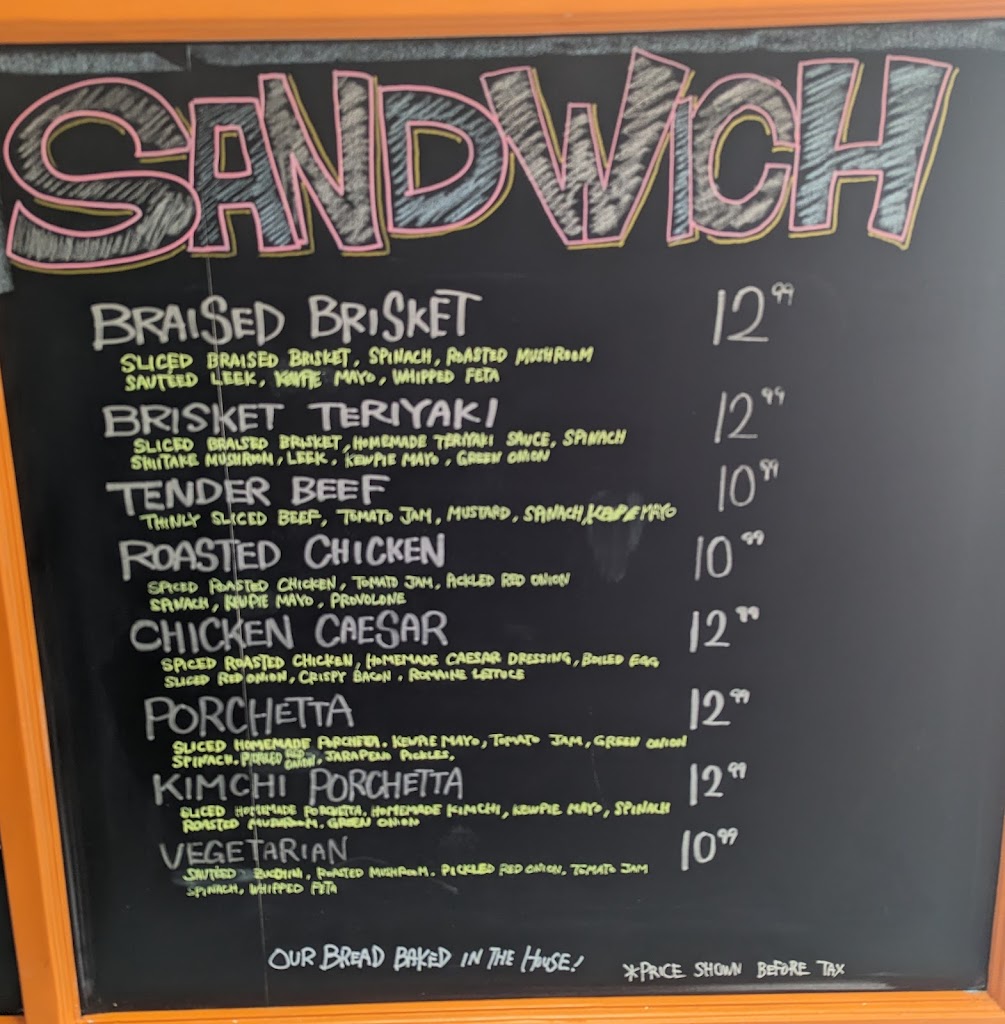 SANDWICH
BRAISED BRISKET 12.99
SLICED BRAISED BRISKET, SPINACH, ROASTED MUSHROOM
SAUTEED LEEK, KEWPIE MAYO, WHIPPED FETA
BRISKET TERIYAKI 12.99
SLICED BRAISED BRISKET, HOMEMADE TERIYAKI SAUCE, SPINACH
SHIITAKE MUSHROOM, LEEK, KEWPIE MAYO, GREEN ONION
TENDER BEEF 10.99
THINLY SLICED BEEF, TOMATO JAM, MUSTARD, SPINACH, KEWPIE MAYO
ROASTED CHICKEN 10.99
SPICED ROASTED CHICKEN, TOMATO JAM, PICKLED RED ONION
SPINACH, KEWPIE MAYO, PROVOLONE
CHICKEN CAESAR 12.99
SPICED ROASTED CHICKEN, HOMEMADE CAESAR DRESSING, BOILED EGG
SLICED RED ONION, CRISPY BACON, ROMAINE LETTUCE
PORCHETTA 12.99
SLICED HOMEMADE PORCHETTA, KEWPIE MAYO, TOMATO JAM, GREEN ONION
SPINACH, PICKLED RED ONION, JARAPENO PICKLES,
KIMCHI PORCHETTA 12.99
SLICED HOMEMADE PORCHETTA, HOMEMADE KIMCHI, KEWPIE MAYO, SPINACH
ROASTED MUSHROOM, GREEN ONION
VEGETARIAN 10.99
SAUTEED ROASTED MUSHROOM, PICKLED RED ONION, TOMATO JAM
SPINACH, WHIPPED FETA
OUR BREAD BAKED IN THE HOUSE!
*PRICE SHOWN BEFORE TAX